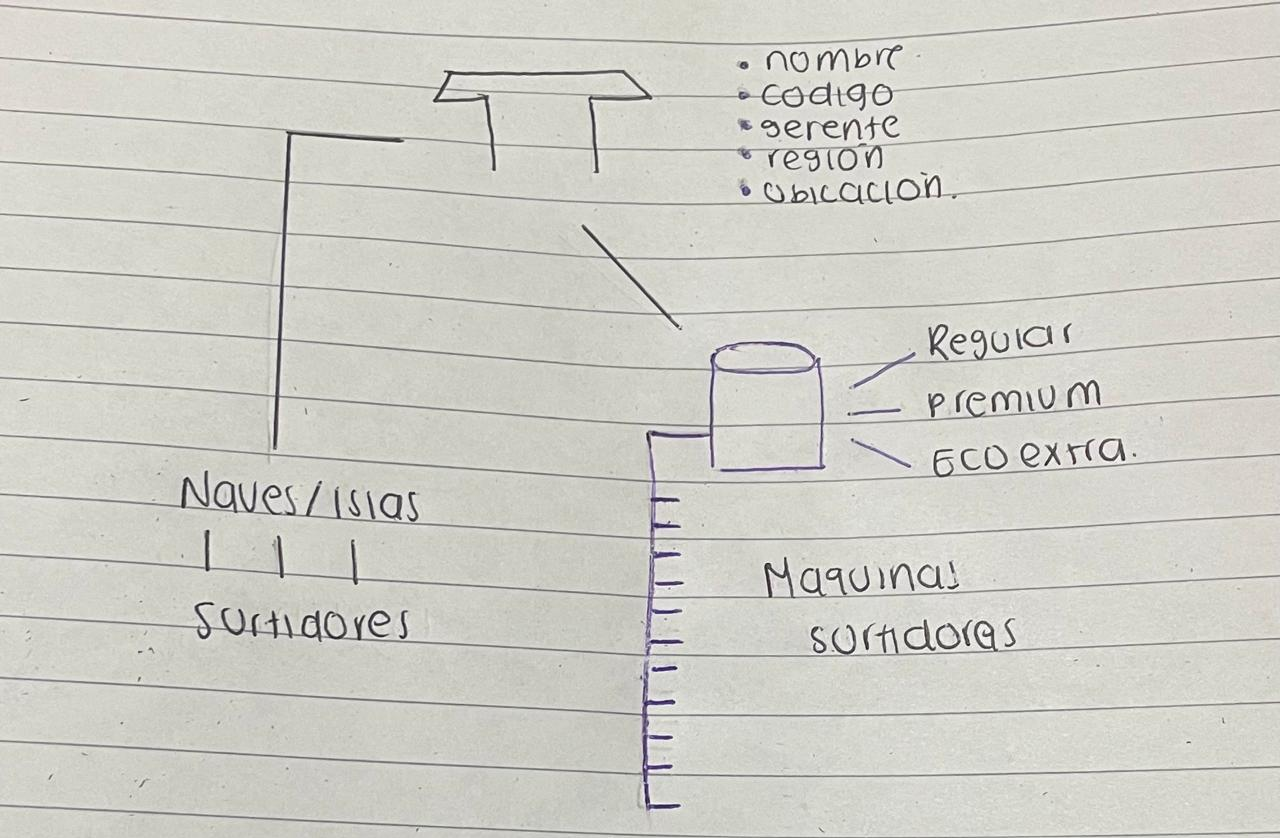 • nombre.
• codigo
• gerente
• región
• ubicación.
Regular
premium
Eco extra.
Naves/Islas
surtidores
Maquinas
surtidoras